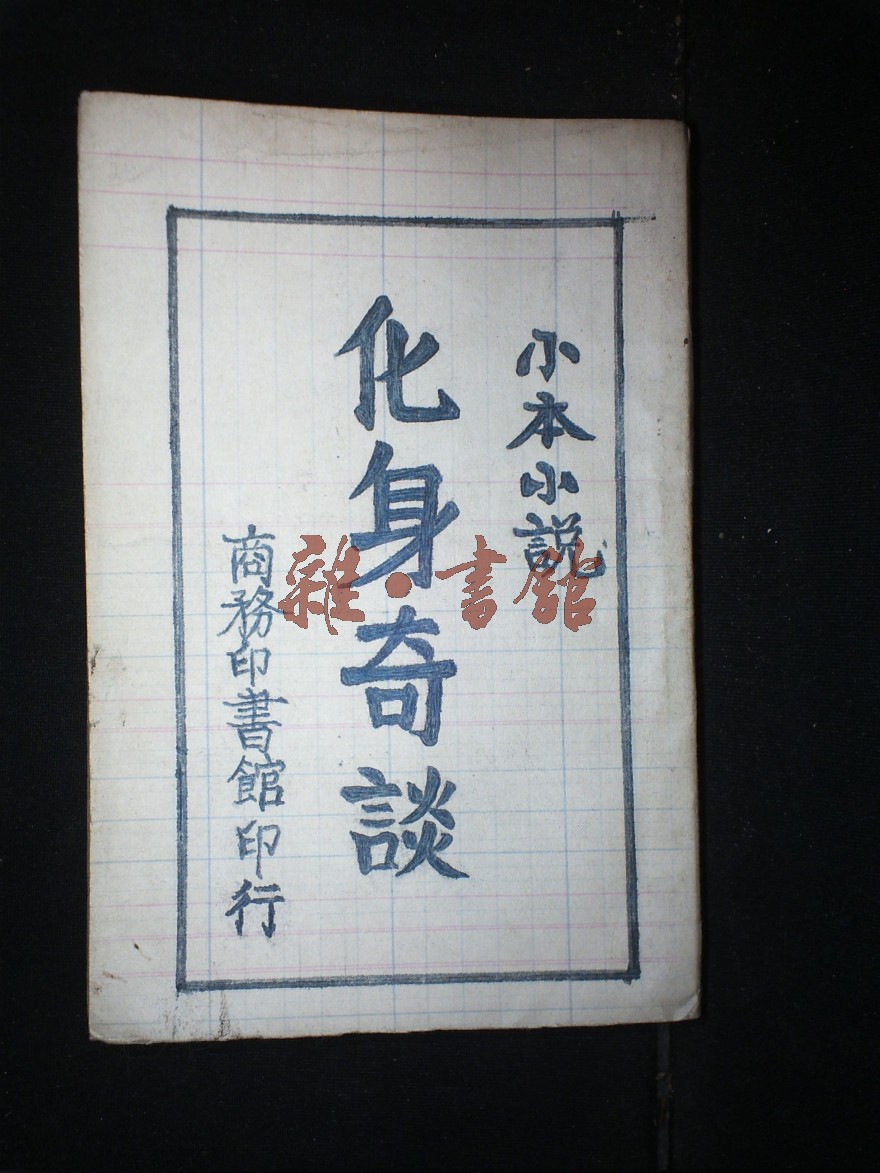 小本小説
化身奇談
商務印書館印行
雜·書館